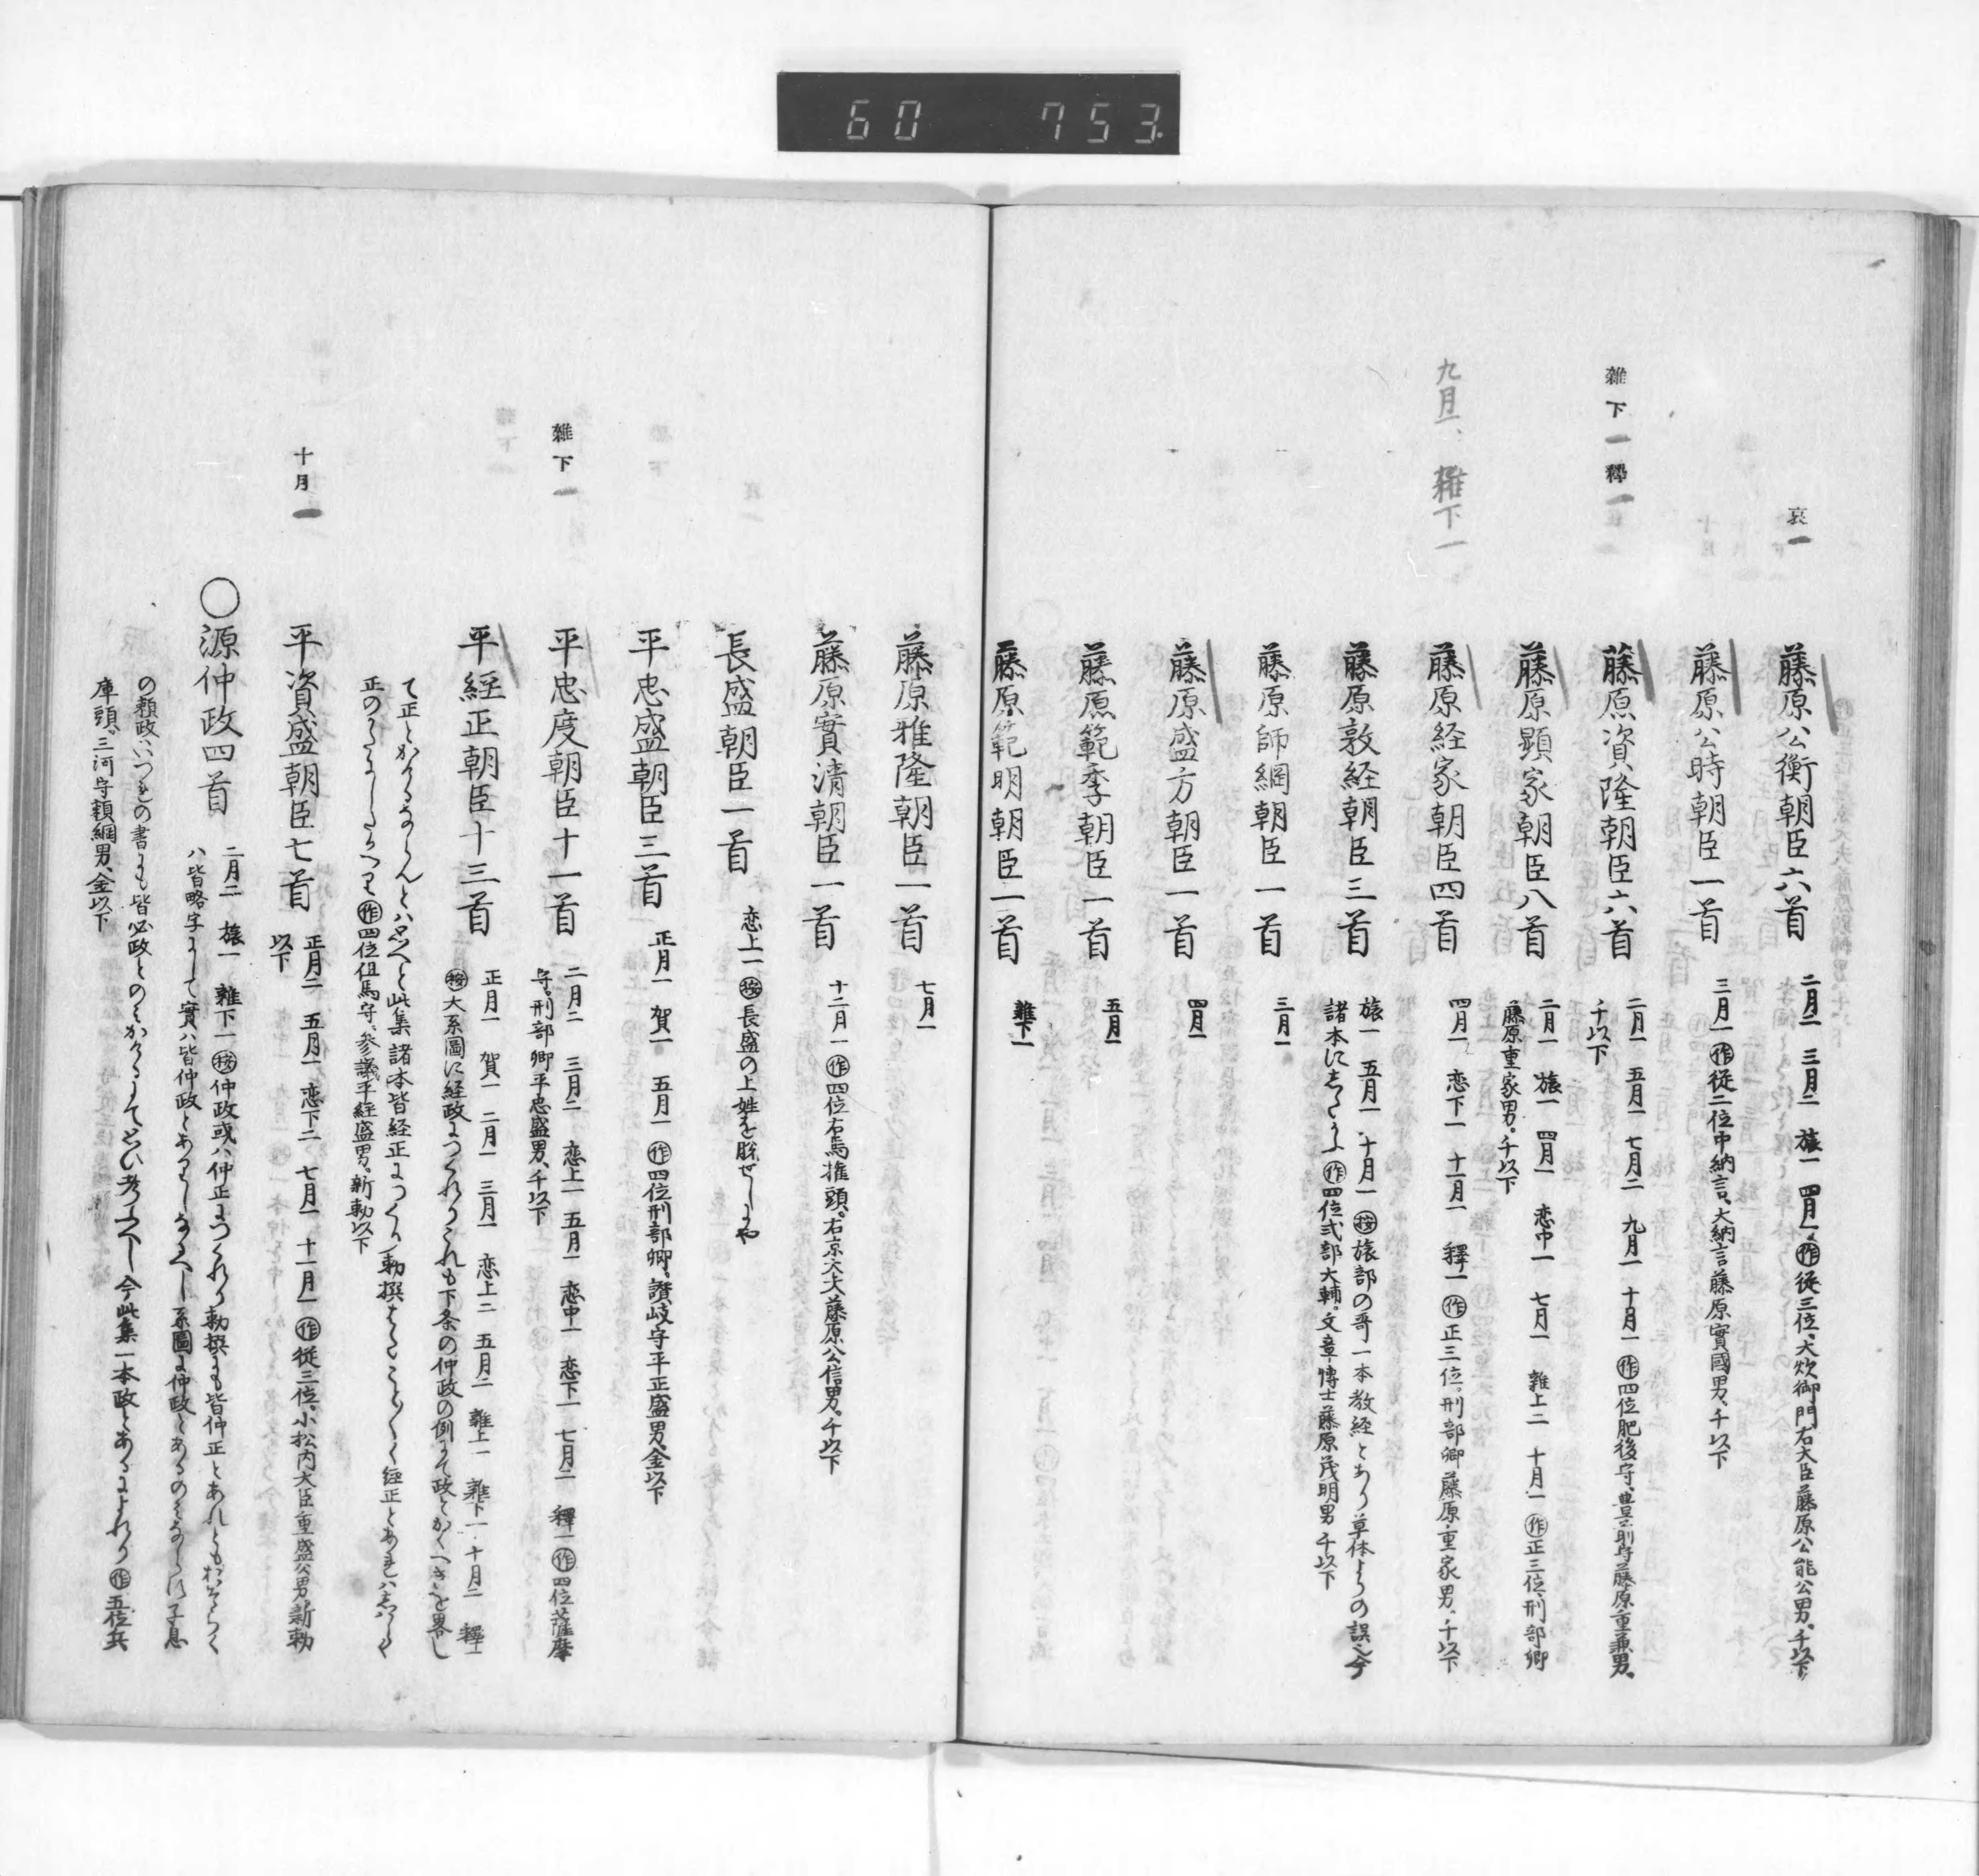 60 753.
哀一
藤原公衡朝臣六首
二月一 三月二 旅一 四月一 作 従三位、大炊御門右大臣藤原公能公男。千以下
藤原公時朝臣一首
三月一 作 従二位中納言、大納言藤原實國男、千以下
雜下一釋一
藤原資隆朝臣六首
二月一 五月一 七月二 九月一 十月一 作 四位肥後守、豊前守藤原重兼男、
千以下
藤原顕家朝臣八首
二月一 旅一 四月一 恋中一 七月一 雜上二 十月一 作 正三位、刑部卿
藤原重家男。千以下
九月一、雜下一
藤原経家朝臣四首
四月一 恋下一 十一月一 釋一 作 正三位。刑部卿藤原重家男。千以下
藤原敦経朝臣三首
旅一 五月一 十月一 按 旅部の哥一本教経とあり草体よりの誤也今
諸本にしたかふ 作 四位式部大輔。文章博士藤原茂明男 千以下
藤原師綱朝臣一首
三月一
藤原盛方朝臣一首
四月一
藤原範季朝臣一首
五月一
藤原範明朝臣一首
雜下一
藤原雅隆朝臣一首
七月一
藤原實清朝臣一首
十二月一 作 四位右馬権頭。右京大夫藤原公信男。千以下
長盛朝臣一首
恋上一 按 長盛の上姓を脱せしにや
平忠盛朝臣三首
正月一 賀一 五月一 作 四位刑部卿。讃岐守平正盛男、金以下
雜下一
平忠度朝臣十一首
二月二 三月二 恋上一 五月一 恋中一 恋下一 七月二 釋一 作 四位薩摩
守。刑部卿平忠盛男、千以下
平経正朝臣十三首
正月一 賀一 二月一 三月一 恋上二 五月二 雜上一 雜下一 十月二 釋一
按 大系圖に経政につくれりこれも下条の仲政の例にて政とかくへきを畧し
て正とかけるならんとハ見へと此集諸本皆経正につくり勅撰もことことく経正とあれハしはらく
正のかたにしたかへり 作 四位但馬守、参議平経盛男。新勅以下
十月一
平資盛朝臣七首
正月二 五月一 恋下二 七月一 十一月一 作 従三位。小松内大臣重盛公男、新勅
以下
○源仲政四首
二月二 旅一 雜下一 按 仲政或ハ仲正につくれり勅撰にも皆仲正とあれともおそらく
ハ皆略字にして實ハ皆仲政とありしなるへし系圖に仲政とあるのミならす子息
の頼政いつれの書にも皆必政とのミかけるにておもひ考ふへし今此集一本政とあるによれり 作 五位兵
庫頭。三河守頼綱男、金以下